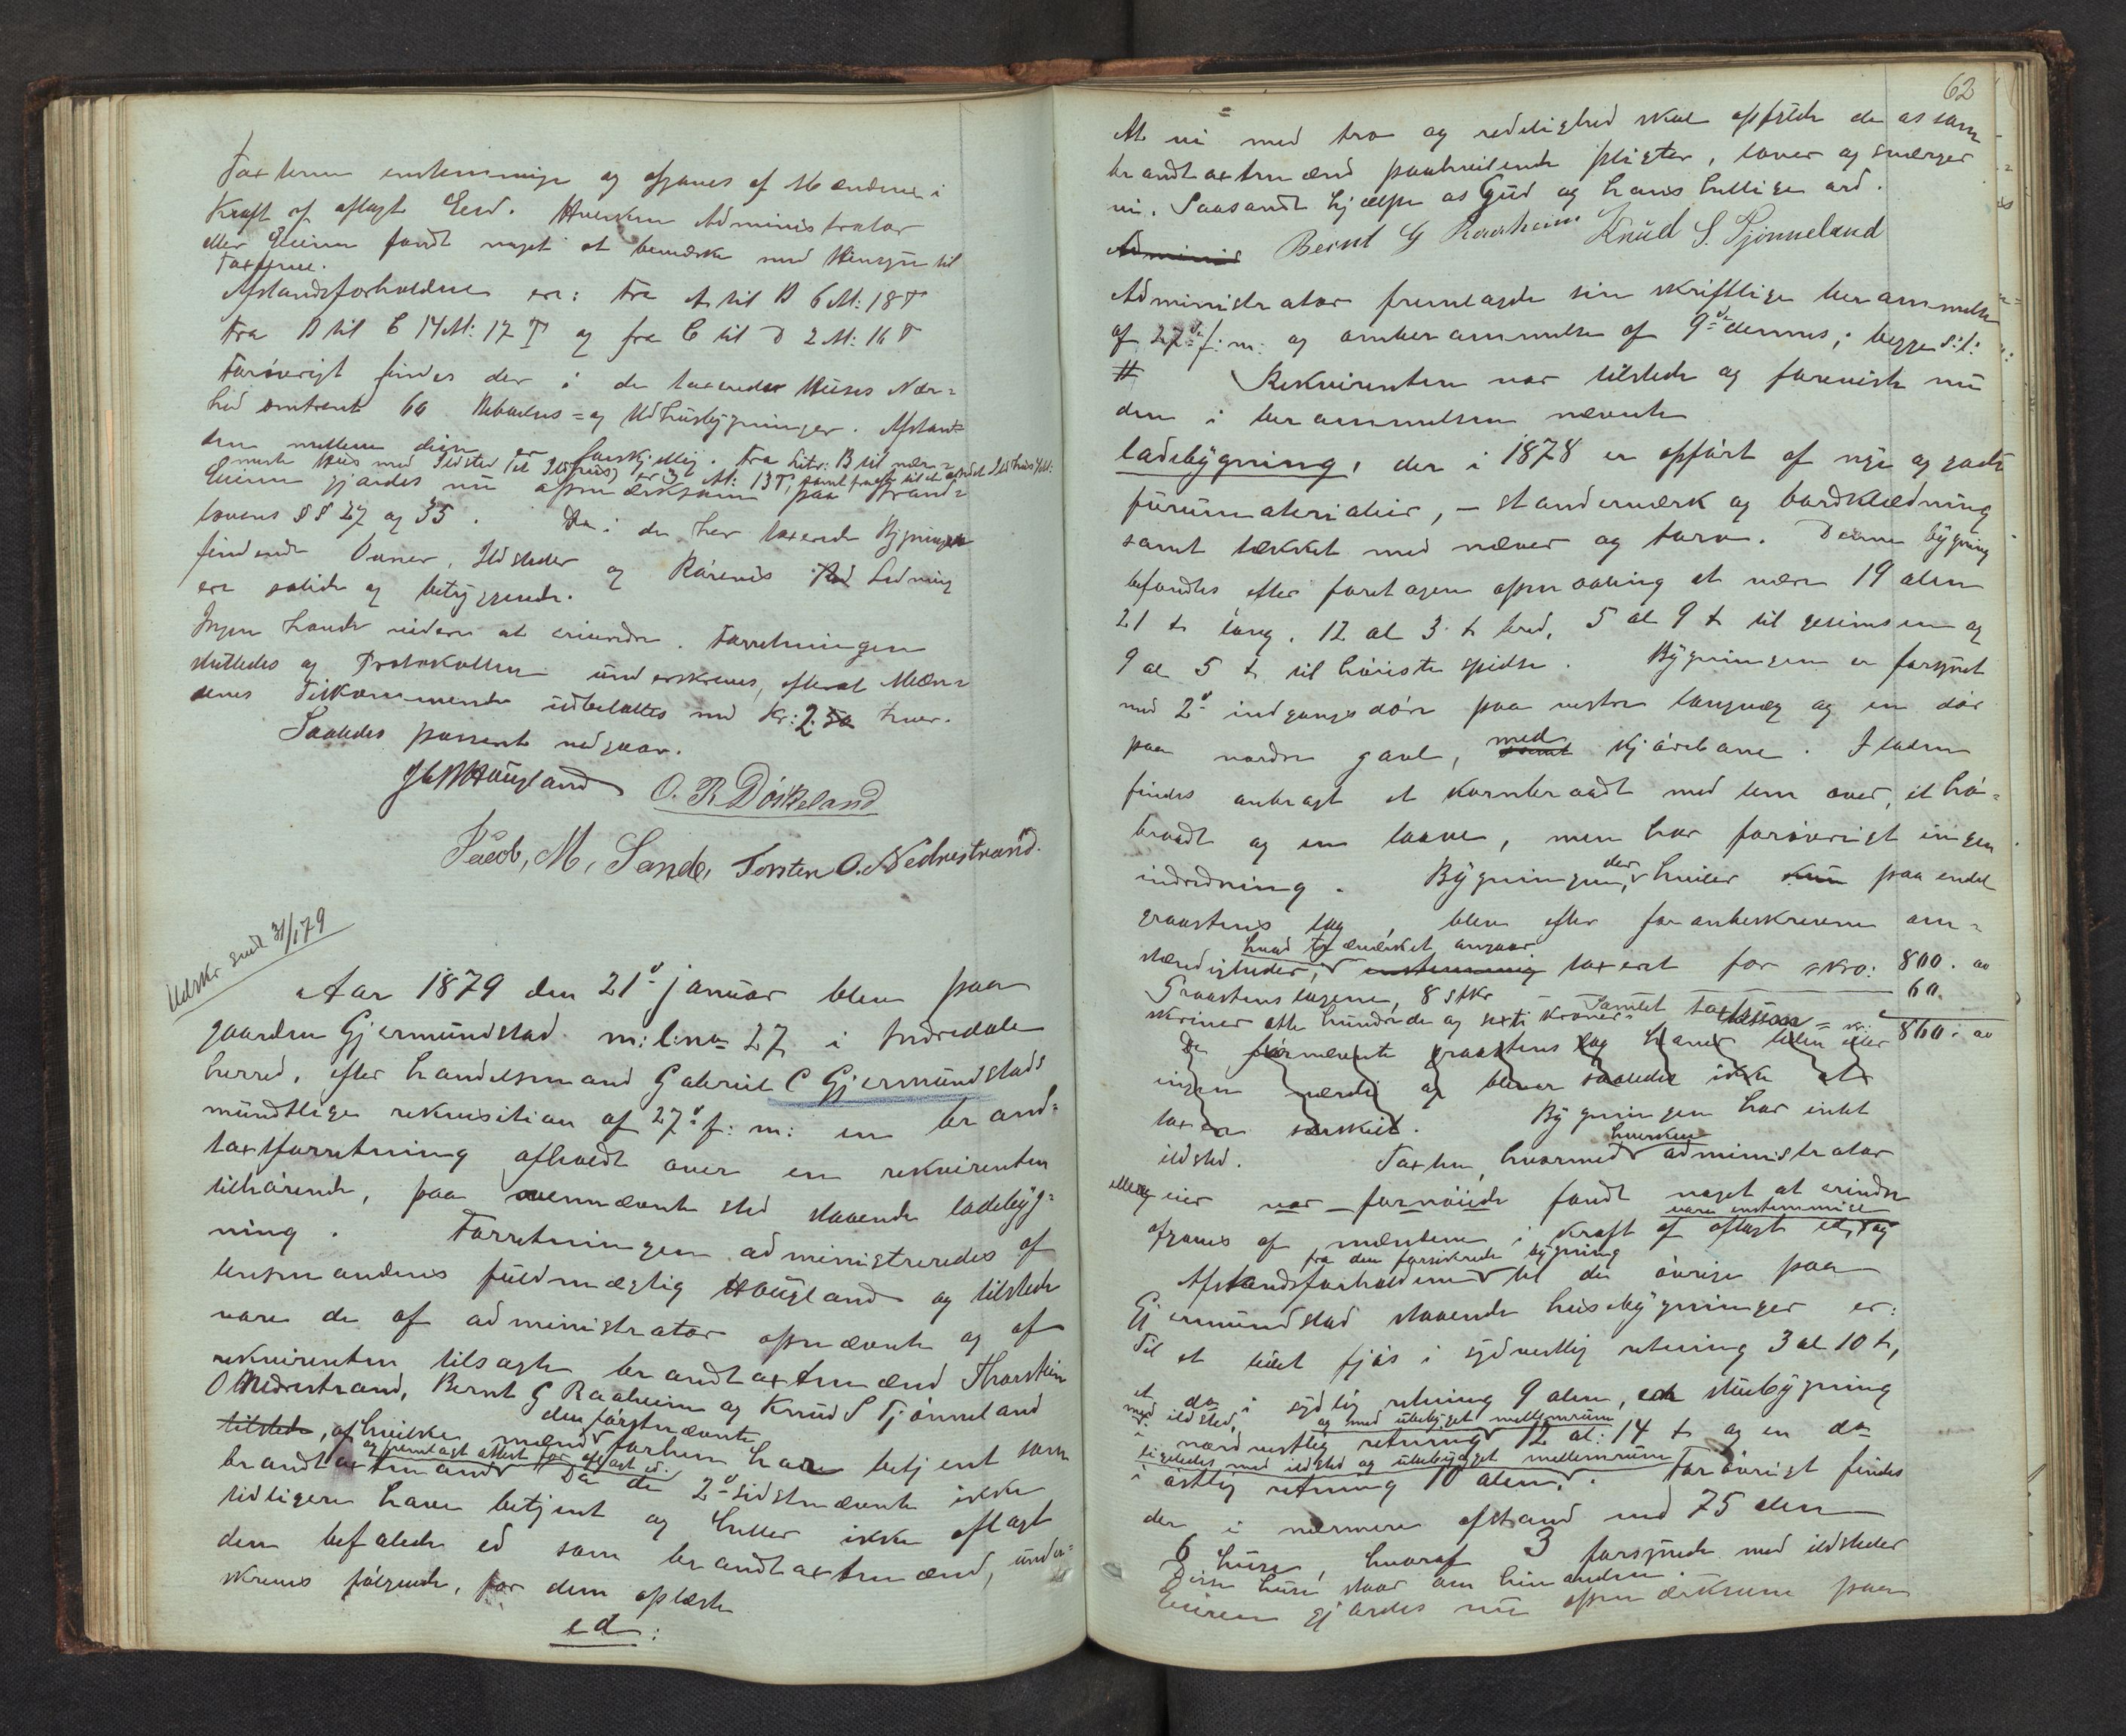 Taxterne enstemmige og afgaves af Mændene i
Kraft af aflagt Eed. Hverken Administrator
eller Eieren fandt noget at bemærke med Hensyn til
Taxterne.
Afstandsforholdene ere: Fra A til B 6 Al: 18 T
Fra B til C 14 Al: 17 T og fra C til D 2 Al: 16 T
Forøvrigt findes der i de taxerede Huses Nær=
hed omtrent 60 Beboelses= og Udhusbygninger. Afstan=
den mellem disse er forskjellig. Fra Litr: B til nær=
meste Hus med Ildsted (et Ildhus) er 3 Al: 13 T,
Eieren gjordes nu opmærksom paa Brand=
lovens §§ 27 og 35. De i de her taxerede Bygninger
findende Ovner, Ildsteder og Rørenes Ledning
ere solide og betryggende.
Ingen havde videre at erindre. Forretningen
sluttedes og Protokollen underskreves, efterat Mæn=
denes Tilkommende udbetaltes med Kr: 2.50 hver.
Saaledes passeret vedgaar.
Haugland O. R. Döskeland
Jacob, M, Sande, Torsten O. Nedrestrand.
Udskr. sendt 31/1 79
Aar 1879 den 21de januar blev paa
gaarden Gjermundstad m: l: no 27 i Indredale
herred, efter handelsmand Gabriel C Gjermundstads
mundtlige rekvisition af 27de f: m: en brand=
taxtforretning afholdt over en rekvirenten
tilhørende, paa ovennævnte sted staaende ladebyg=
ning. Forretningen administreredes af
lensmandens fuldmægtig Haugland og tilstede
vare de af administrator opnævnte og af
rekvirenten tilsagte brandtaxtmænd Thorstein
O Nedrestrand, Bernt G Raaheim og Knud S Tjønneland
tilstede, af hvilke mænd den førstnævnte forhen har betjent som
brandtaxtmand og fremlagt attest for aflagt ed. Da de 2de sidstnævnte ikke
tidligere have betjent og heller ikke aflagt
den befalede ed som brandtaxtmænd, under=
skreves følgende, for dem oplæste
ed:
62
At vi med tro og redelighed skal opfylde de os som
brandtaxtmænd paahvilende pligter, lover og sværger
vi. Saasandt hjælpe os Gud og hans hellige ord.
Adminis Bernt G Raaheim Knud S. Tjönneland
Administrator fremlagde sin skriftlige berammelse
af 27de f: m: og omberammelse af 9de dennes; begge s: l:
# Rekvirenten var tilstede og foreviste nu
den i berammelsen nævnte
ladebygning, der i 1878 er opført af nye og gode
furumaterialier, – standerværk og bordklædning
samt tækket med næver og torv. Denne bygning
befandtes efter foretagen opmaaling at være 19 alen
21 t. lang, 12 al 3 t. bred, 5 al 9 t. til gesimsen og
9 al 5 t. til høieste spidse. Bygningen er forsynet
med 2de indgangsdøre paa vestre langvæg og en dør
paa nordre gavl, samt med kjørebane. I laden
findes anbragt et kornbraadt med lem over, et hø=
braadt og en laave, men har forøvrigt ingen
indredning. Bygningen, der hviler kun paa endel
graastens lag, blev efter foranbeskrevene om=
stændigheder, hvad træværket angaar enstemmig taxert for kro: 800. 00
Graastens lagene, 8 stkr 60.
skriver otte hundrede og sexti kroner. Samlet taxtsum = kr: 860: 00
De førnævnte graastens lag haver liden eller
ingen værdi og bliver saaledes ikke at
taxere særskilt. Bygningen har intet
ildsted. Taxten, hvormed hverken administrator
eller eier var fornøiede fandt noget at erindre
vare enstemmige og
afgaves af mændene i kraft af aflagt ed,
Afstandsforholdene fra den forsikrede bygning til de øvrige paa
Gjermundstad staaende husebygninger er:
Til et lidet fjøs i sydvestlig retning 3 al 10 t.,
et do i sydlig retning 9 alen, en stuebygning
med ildsted, og med ubebygget mellemrum
i nordvestlig retning 12 al: 14 t. og en do
ligeledes med ildsted og ubebygget mellemrum
i østlig retning 10 alen. Forøvrigt findes
der i nærmere afstand end 75 alen
6 huse, hvoraf 3 forsynede med ildsteder
Disse huse staar om hinanden.
Eieren gjordes nu opmærksom paa